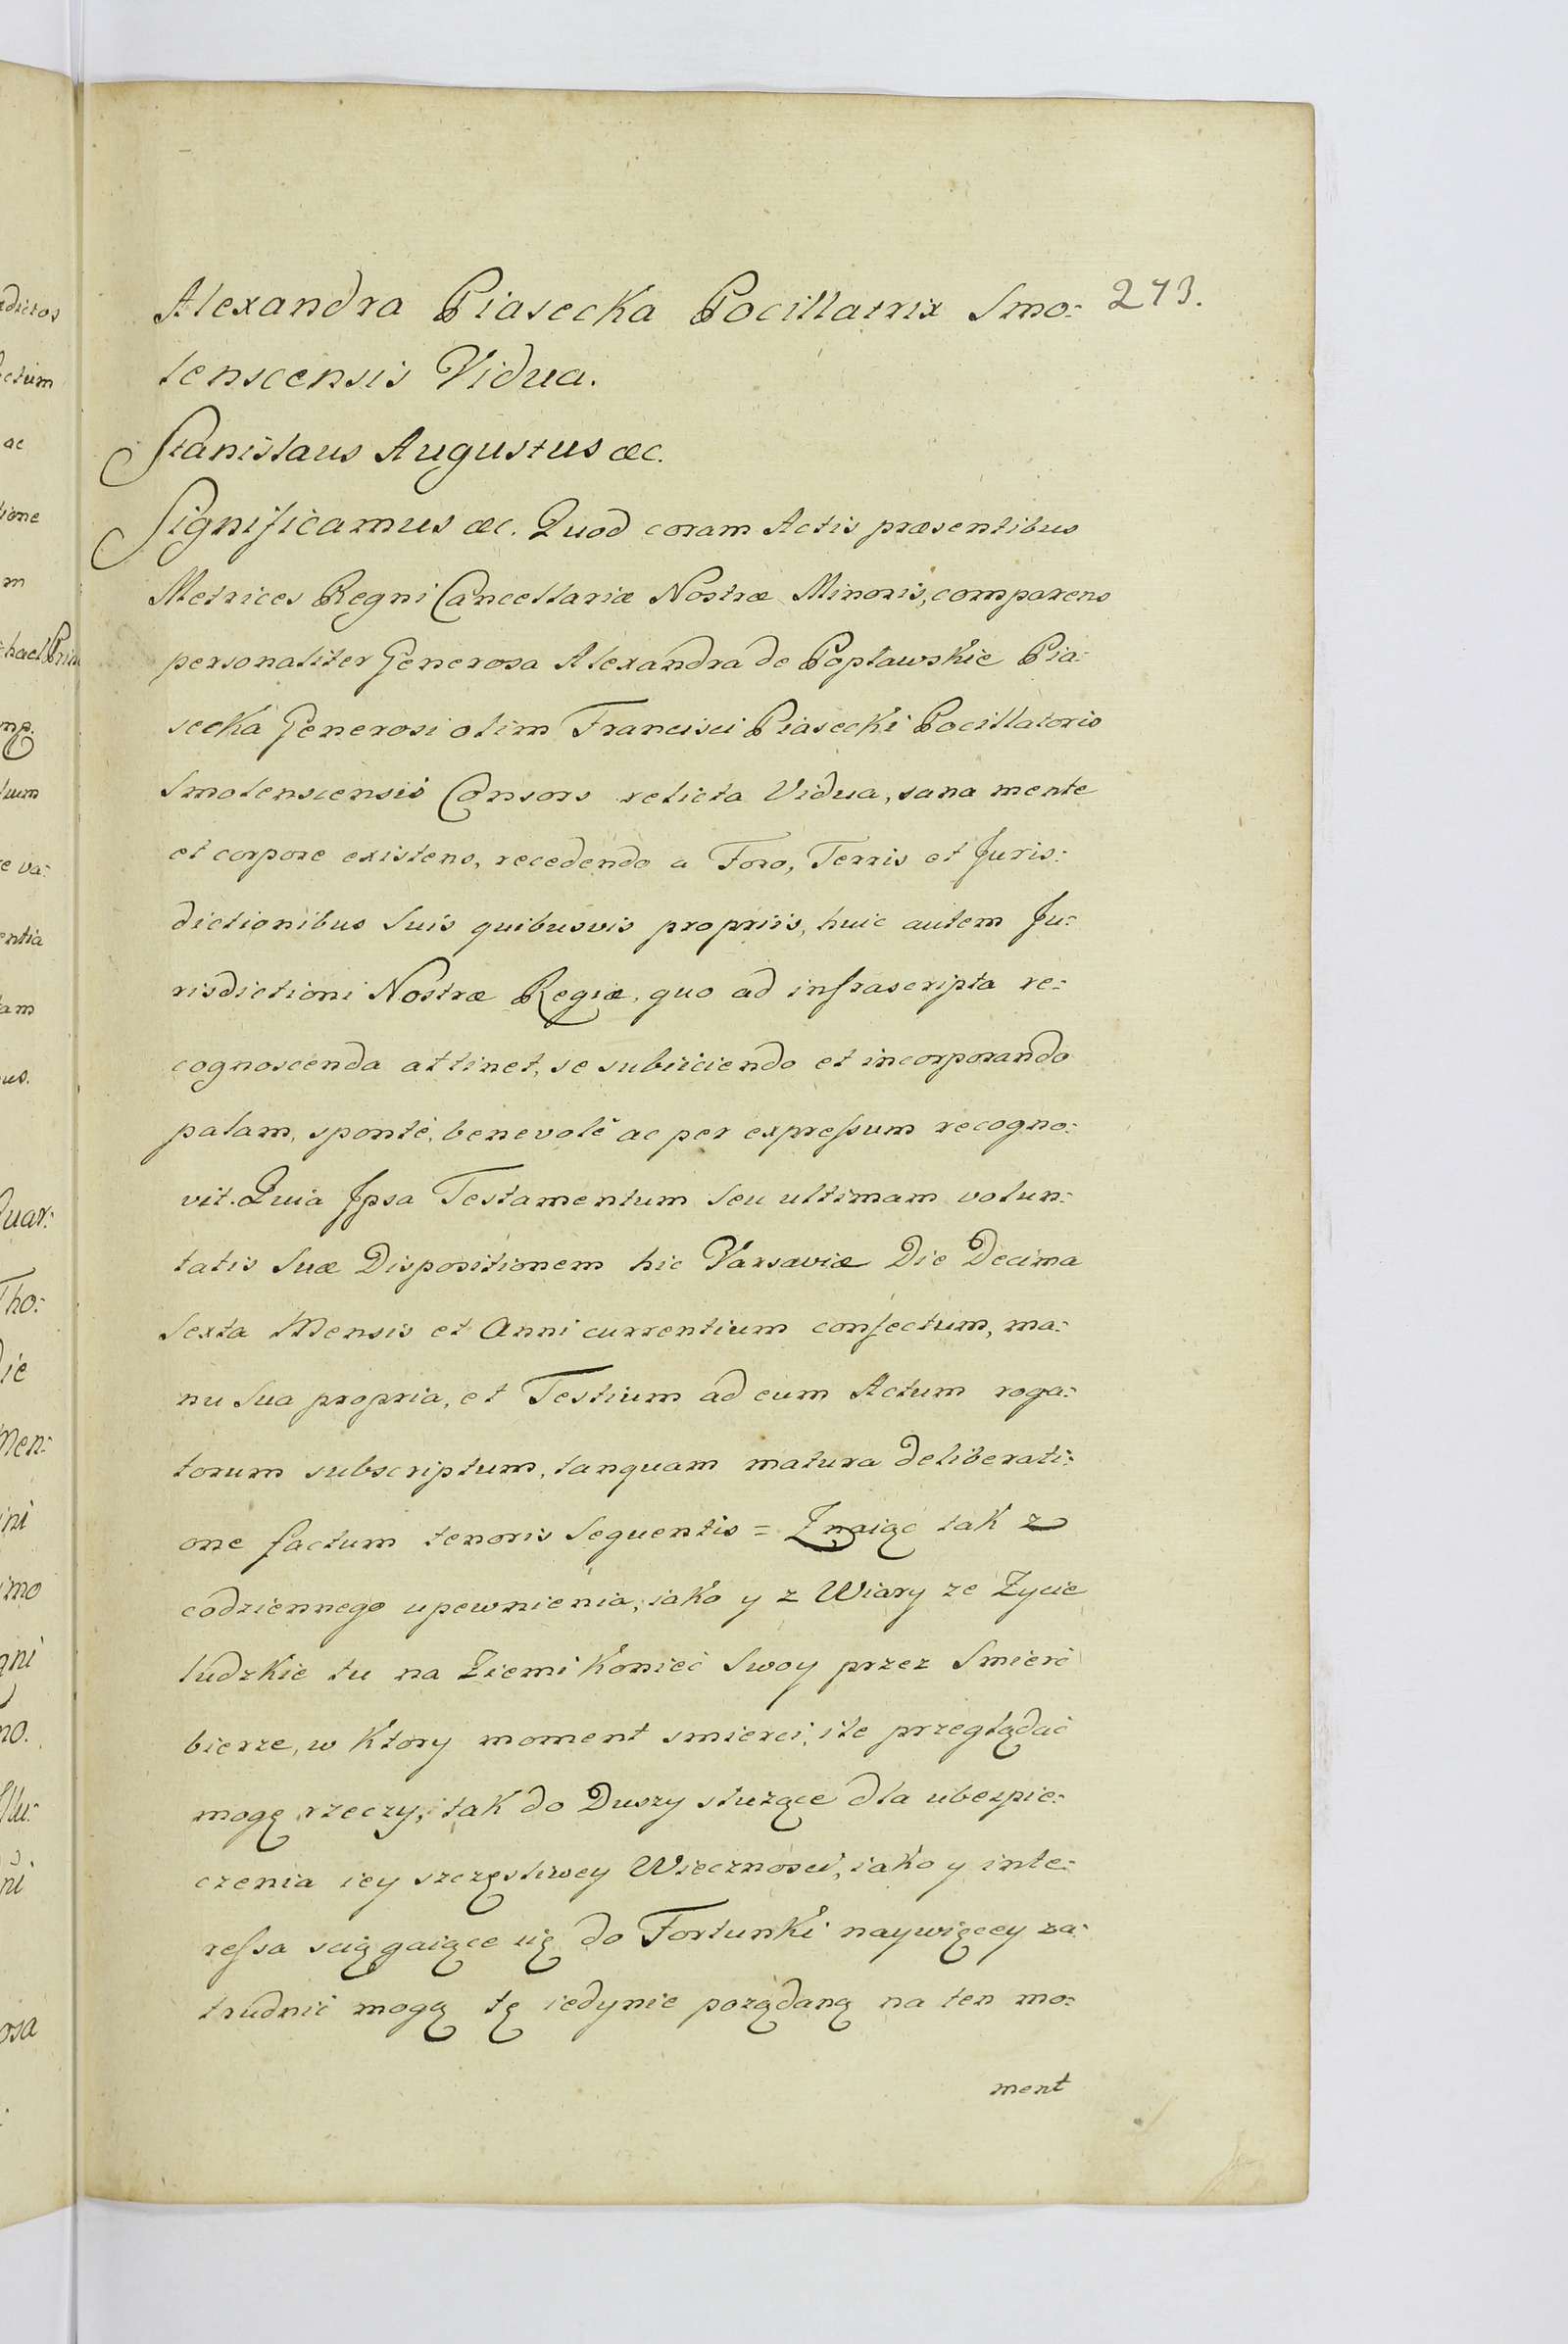 Alexandra Piasecka Pocillatrix Smo: 273.
lenscensis Vidua.
Stanislaus Augustus &c.
Significamus &c. Quod coram Actis præsentibus
Metrices Regni Cancellariæ Nostræ Minoris, comparens
personaliter Generosa Alexandra de Popławskie Pia:
secka Generosi olim Francisci Piasecki Pocillatoris
Smolenscensis Consors relicta Vidua, sana mente
et corpore existens, recedendo a Foro, Terris et Juris:
dictionibus Suis quibusvis propriis, huic autem Ju:
risdictioni Nostræ Regiæ, quo ad infrascripta re:
cognoscenda attinet, se subiiciendo et incorporando
palam, sponte, benevole ac per expreſsum recogno:
vit. Quia Ipsa Testamentum Seu ultimam volun:
tatis Suæ Dispositionem hic Varsaviæ Die Decima
Sexta Mensis et Anni currentium confectum, ma:
nu Sua propria, et Testium ad eum Actum roga:
torum subscriptum, tanquam matura deliberati:
one factum tenoris Sequentis = Znaiąc tak z
codziennego upewnienia, iako y z Wiary ze Zycie
ludzkie tu na Ziemi koniec Swoy przez Smierć
bierze, w ktory moment smierci, ile przeglądać
mogę rzeczy, tak do Duszy służące dla ubezpie:
czenia iey szczęsliwey Wieczności, iako y inte:
reſsa sciągaiące się do Fortunki naywięcey za:
trudnić mogą tę iedynie pożądaną na ten mo:
ment
adictos
ectum
ac
tione
m
chael Prin
mp.
tuum
e va:
entia
tam
us.
Quar:
Tho:
Die
Men:
ini
imo
gni
no.
Illu:
ni
osa